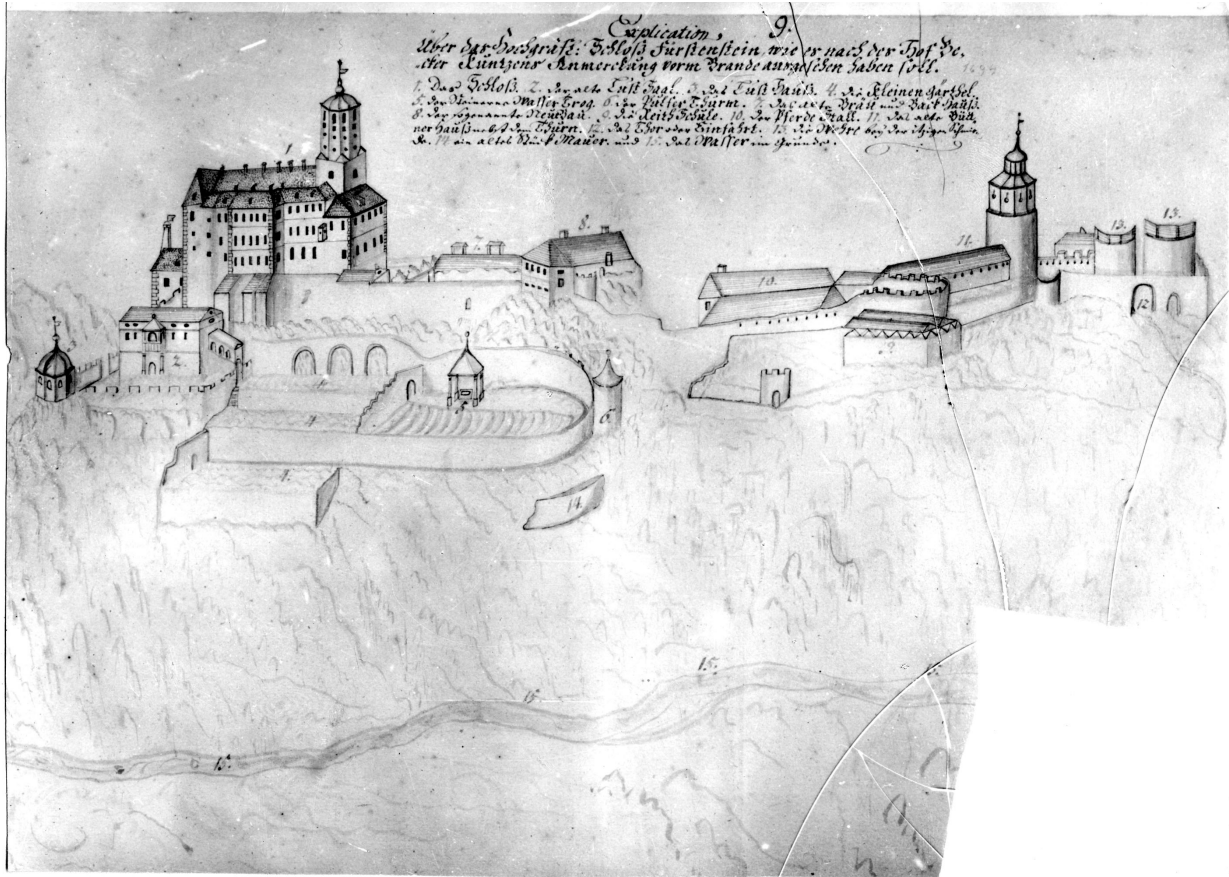 Explication, 9.
Über das Hochgräfl: Schloß Fürstenstein, wie er nach der Hof Be-
cker Kuntzens Anmerckung vorm Brande ausgesehen haben soll.
1. Das Schloß. 2. der alte Lust Saal. 3. das Lust Hauß. 4. die Kleinen Gärthel.
5. der Steinerne Wasser Trog. 6. der Pulffer Thurm. 7. das alte Bräu und Back Hauß.
8. das sogenannte Neue Bau. 9. die Reith Schule. 10. der Pferde Stall. 11. das alte
ner Hauß nebst dem Thurn. 12. das Thor oder Einfahrt. 13. die Wehre bey der itzigen
de. 14 ein altes Stück Mauer. und 15. das Wasser im Grunde.
1
7.
8.
11.
13.
13.
10.
12
2.
9
5
4
6
4.
14.
15.
15.
15.
15.